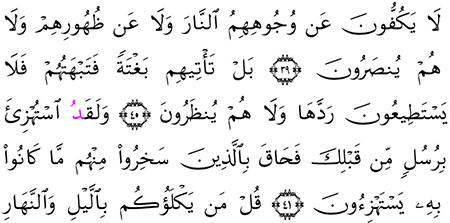 لَا يَكُفُّونَ عَن وُجُوهِهِمُ النَّارَ وَلَا عَن ظُهُورِهِمْ وَلَا
هُمْ يُنصَرُونَ ﴿٣٩﴾ بَلْ تَأْتِيهِم بَغْتَةً فَتَبْهَتُهُمْ فَلَا
يَسْتَطِيعُونَ رَدَّهَا وَلَا هُمْ يُنظَرُونَ ﴿٤٠﴾ وَلَقَدُ اسْتُهْزِئَ
بِرُسُلٍ مِّن قَبْلِكَ فَحَاقَ بِالَّذِينَ سَخِرُوا۟ مِنْهُم مَّا كَانُوا۟
بِهِۦ يَسْتَهْزِءُونَ ﴿٤١﴾ قُلْ مَن يَكْلَؤُكُم بِالَّيْلِ وَالنَّهَارِ